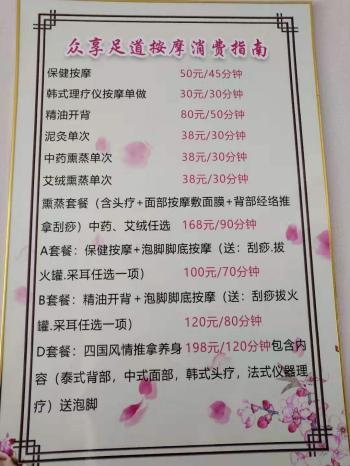 众享足道按摩消费指南
保健按摩 50元/45分钟
韩式理疗仪按摩单做 30元/30分钟
精油开背 80元/50分钟
泥灸单次 38元/30分钟
中药熏蒸单次 38元/30分钟
艾绒熏蒸单次 38元/30分钟
熏蒸套餐（含头疗+面部按摩敷面膜+背部经络推
拿刮痧）中药、艾绒任选 168元/90分钟
A套餐：保健按摩+泡脚脚底按摩（送：刮痧.拔
火罐.采耳任选一项） 100元/70分钟
B套餐：精油开背+泡脚脚底按摩（送：刮痧拔火
罐.采耳任选一项） 120元/80分钟
D套餐：四国风情推拿养身 198元/120分钟包含内
容（泰式背部，中式面部，韩式头疗，法式仪器理
疗）送泡脚